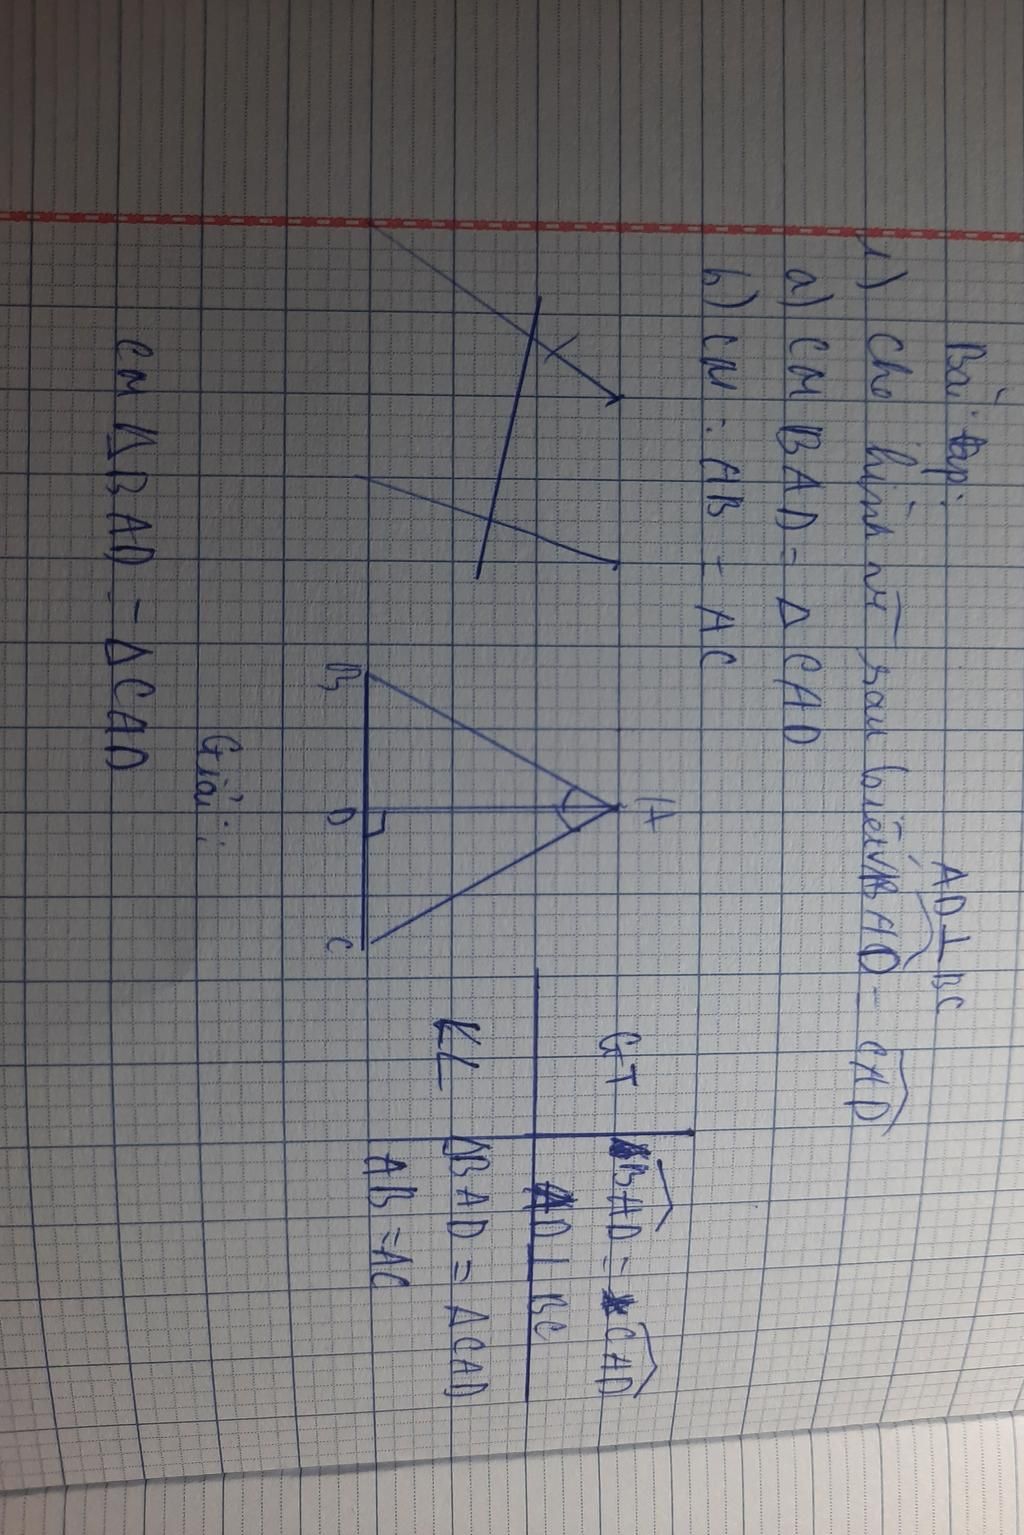 Bài tập:
AD ⊥ BC
1) Cho hình vẽ sau biết BAD = CAD
a) CM BAD = Δ CAD
b) CM : AB = AC
A
B
D
C
GT
BAD = CAD
AD ⊥ BC
KL
ΔBAD = ΔCAD
AB = AC
Giải:
CM ΔBAD = ΔCAD